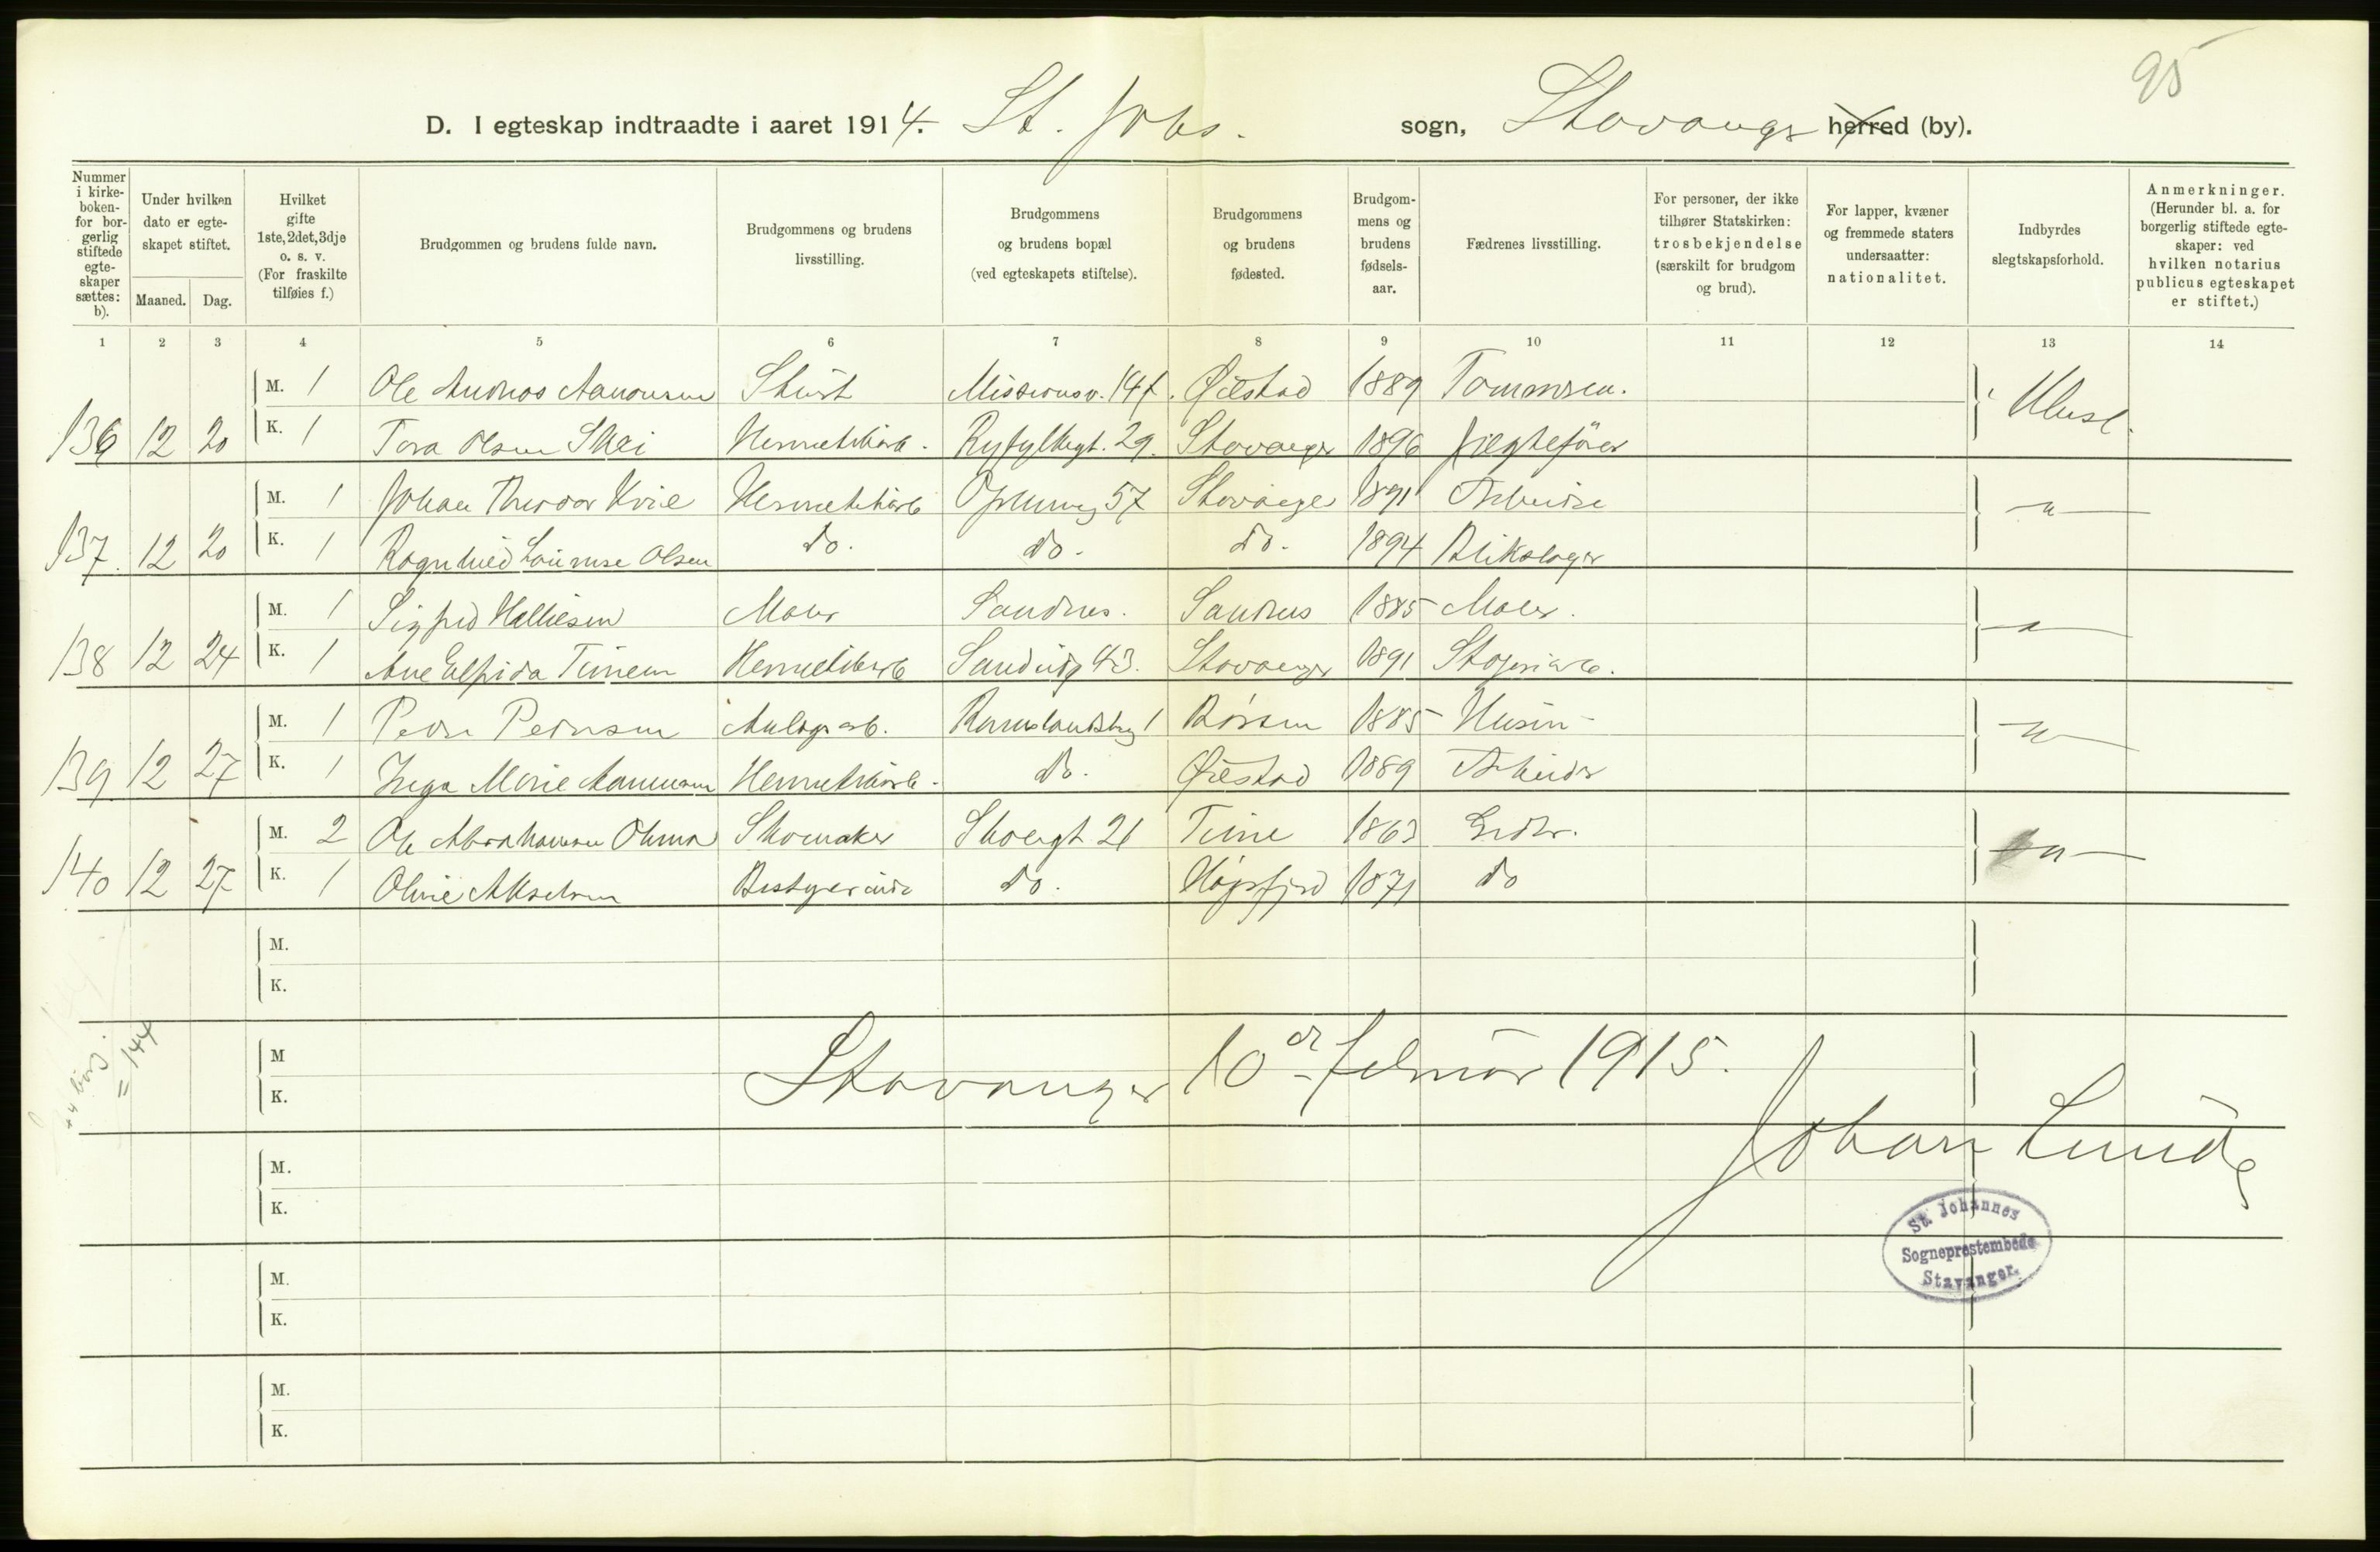 95
D. I egteskap indtraadte i aaret 1914. St. Johs. sogn, Stavanger herred (by).
Nummer i kirke-boken- for bor-gerlig stiftede egte-skaper sættes: b).
Under hvilken dato er egte-skapet stiftet.
Maaned. Dag.
Hvilket gifte 1ste, 2det, 3dje o. s. v. (For fraskilte tilføies f.)
Brudgommen og brudens fulde navn.
Brudgommens og brudens livsstilling.
Brudgommens og brudens bopæl (ved egteskapets stiftelse).
Brudgommens og brudens fødested.
Brudgom-mens og brudens fødsels-aar.
Fædrenes livsstilling.
For personer, der ikke tilhører Statskirken: trosbekjendelse (særskilt for brudgom og brud).
For lapper, kvæner og fremmede staters undersaatter: nationalitet.
Indbyrdes slegtskapsforhold.
Anmerkninger. (Herunder bl. a. for borgerlig stiftede egte-skaper: ved hvilken notarius publicus egteskapet er stiftet.)
1 2 3 4 5 6 7 8 9 10 11 12 13 14
M. 1 Ole Andreas Missionsv. 14 Øiestad 1889 Ubesl.
136 12 20 K. 1 Tora Olsen Skei Hermetikarb. Ryfylkegt. 29. Stavanger 1896 Jægtefører
M. 1 Johan Theodor Hermetikarb Stavanger 1891 Arbeider — " —
137. 12 20 K. 1 Ragnhild Laurense Olsen do. do. do. 1894 Blikslager
M. 1 Sigfred Maler Sandnes. Sandnes 1885 Maler. — " —
138 12 24 K. 1 Ane Elfrida Hermetikarb 43. Stavanger 1891
M. 1 Peder Pedersen Anlægsarb. 1 Børsen 1885 — " —
139 12 27 K. 1 Inga Marie Hermetikarb. do. Øiestad 1889 Arbeider
M. 2 Ole Abrahamsen Skomaker 21 Time 1863 Grdbr. — " —
140 12 27 K. 1 Oline Akselsen Bestyrerinde do. Høgsfjord 1871 do
M.
K.
M
K.
+ 4 borg.
= 144
Stavanger 10de februar 1915.
Johan Lunde
M.
K.
St. Johannes
Sogneprestembede
Stavanger.
M.
K.
M.
K.